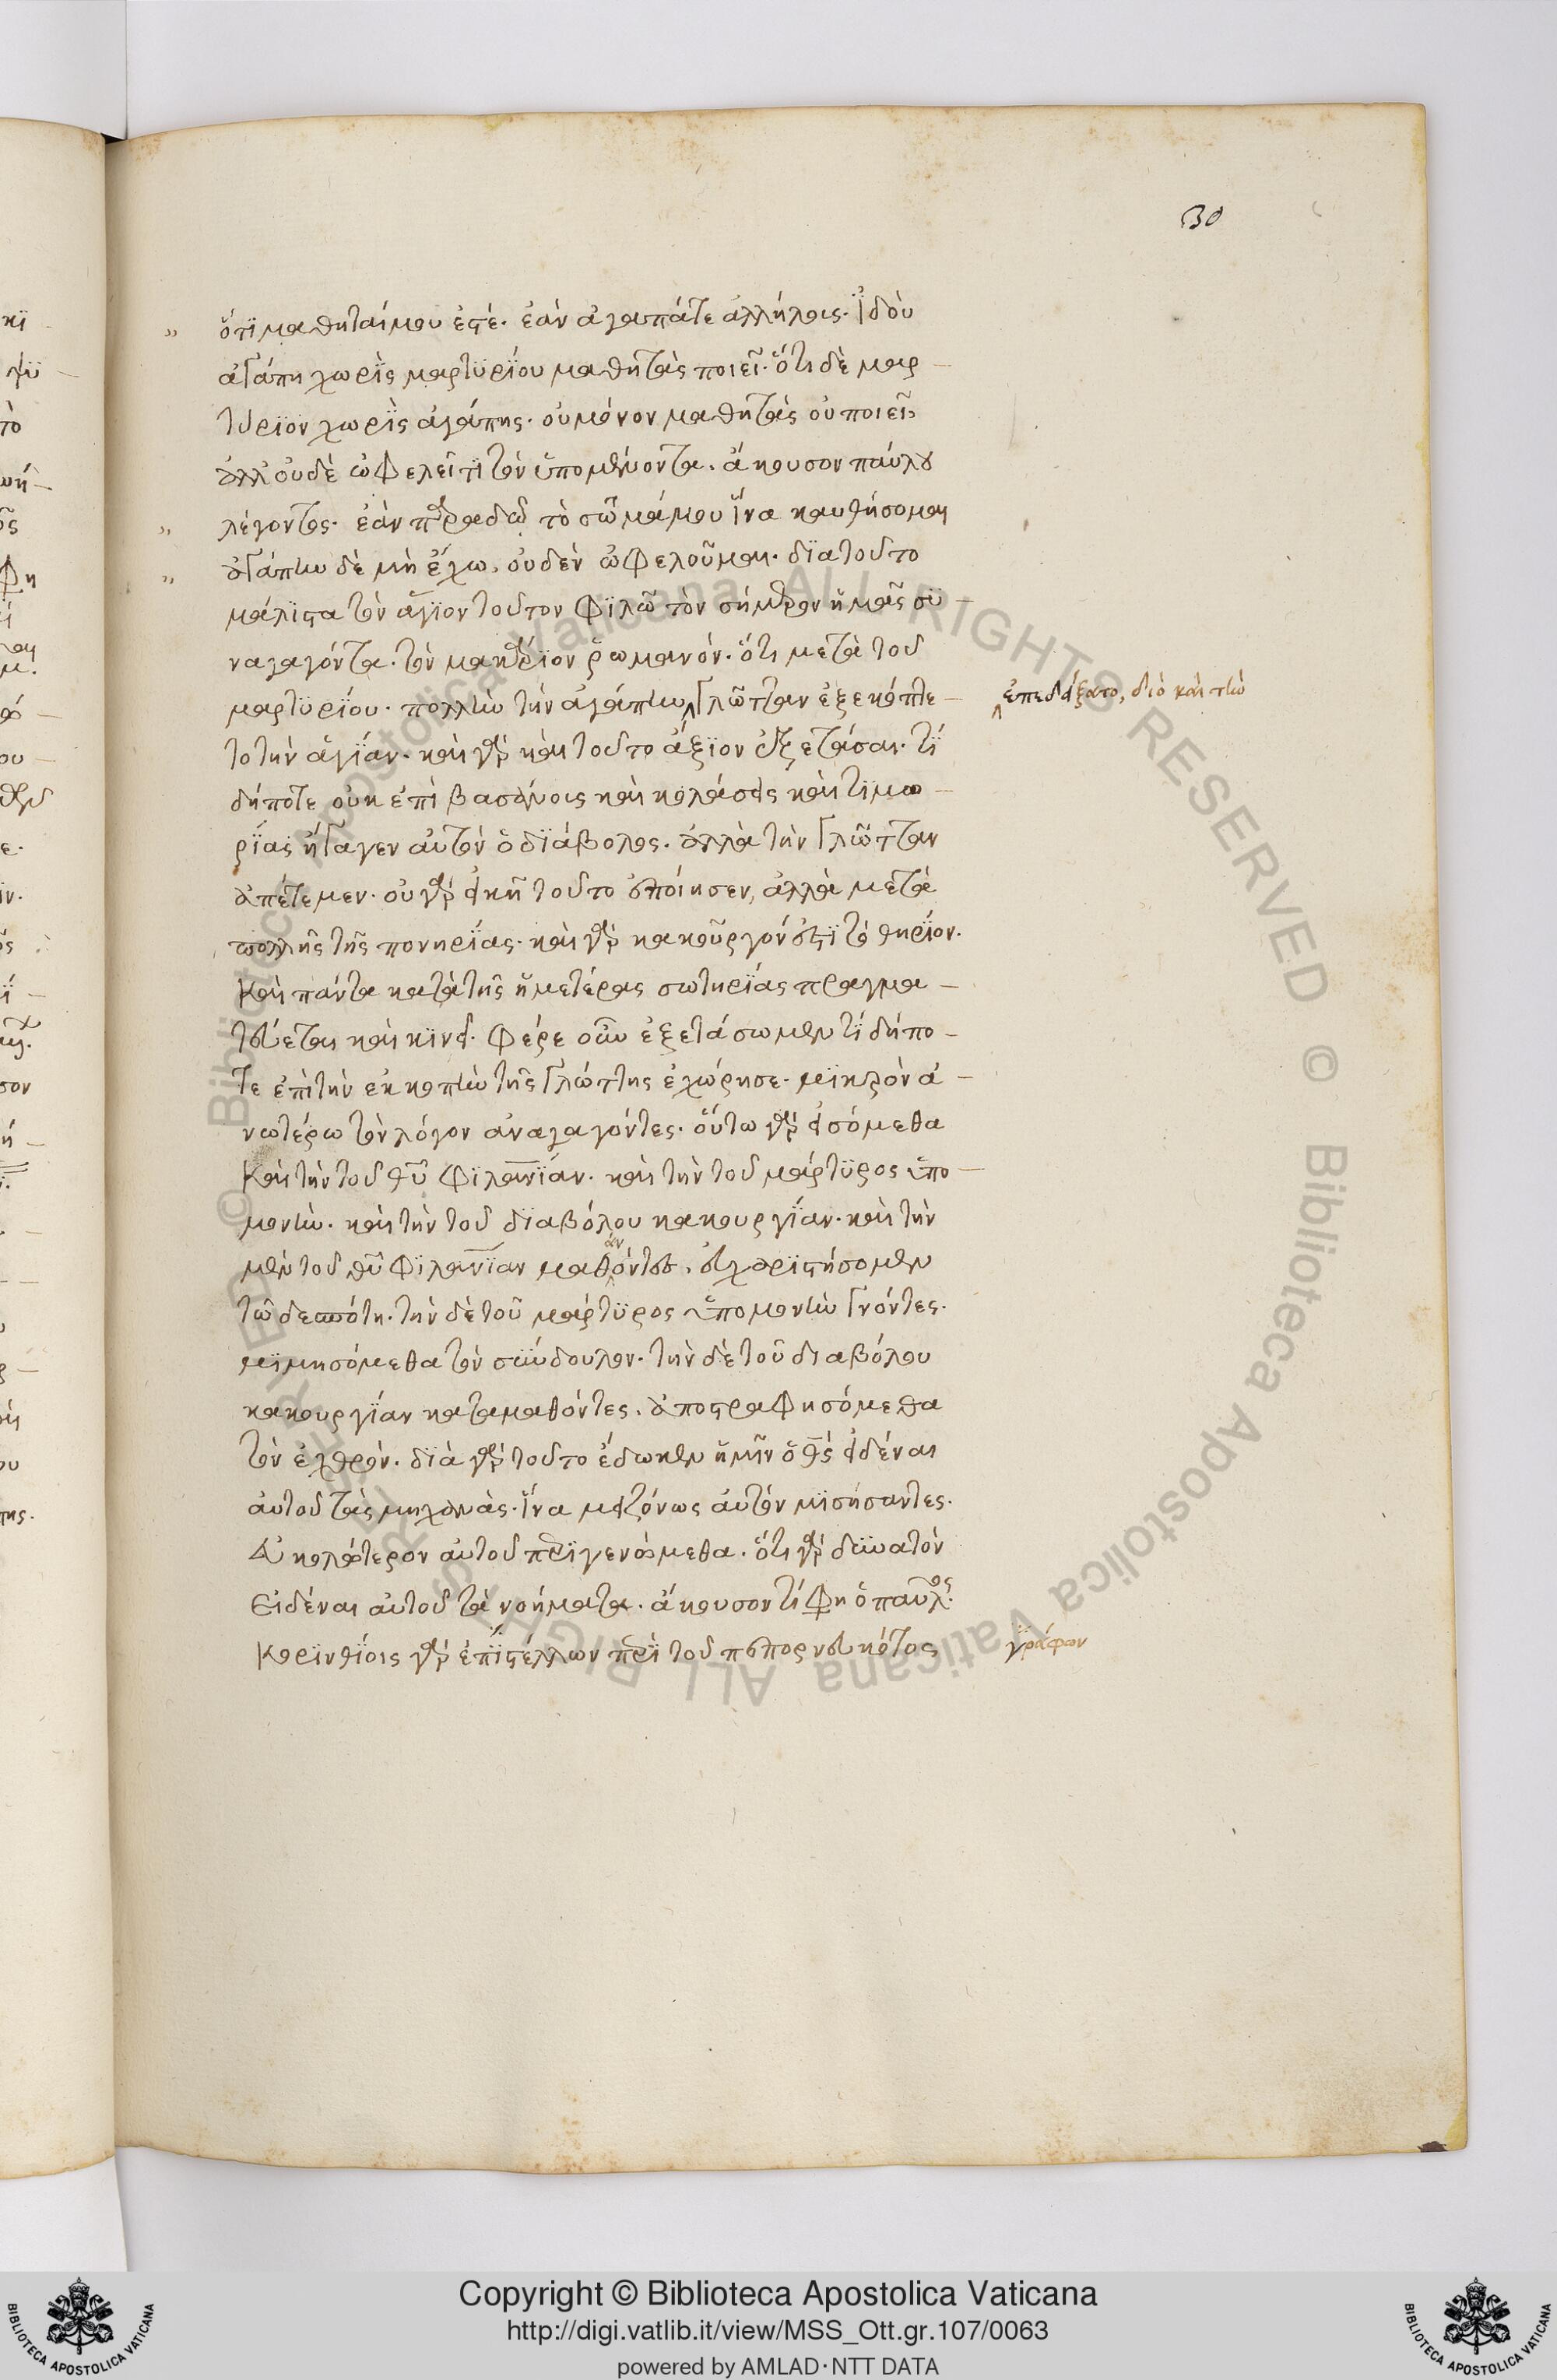 30
ὅτϊ μαθηταί μου ἐστέ· ἐὰν ἀγαπᾶτε ἀλλήλοις· ἰδοὺ
ἀγάπη χωρῒς μαρτϋρίου μαθητὰς ποιεῖ· ὅτι δὲ μαρ
τύρϊον χωρῒς ἀγάπης· οὐ μόνον μαθητὰς οὐ ποιεῖ,
ἀλλ' οὐδὲ ὠφελεῖ τϊ τὸν ὑπομένοντα. ἄκουσον παύλου
λέγοντος· ἐὰν παραδῶ τὸ σῶμά μου ἵνα καυθήσομαι
ἀγάπην δὲ μὴ ἔχω, οὐδὲν ὠφελοῦμαι. δϊατοῦτο
μάλιστα τὸν ἅγϊον τοῦτον φϊλῶ τὸν σήμερον ἡμᾶς συ
ναγαγόντα. τὸν μακάρϊον ῥωμανόν. ὅτι μετὰ τοῦ
μαρτϋρίου· πολλὴν τὴν ἀγάπην γλῶτταν ἐξεκόπτε
ἐπεδείξατο, διὸ καὶ τὴν
το τὴν ἁγίαν. καὶ γὰρ καὶ τοῦτο ἄξϊον ἐξετάσαι. τί
δήποτε οὐκ ἐπὶ βασάνοις καὶ κολάσεις καὶ τϊμω
ρίας ἤγαγεν αὐτὸν ὁ δϊάβολος. ἀλλὰ τὴν γλῶτταν
ἀπέτεμεν. οὐ γὰρ εἰκῆ τοῦτο ἐποίησεν, ἀλλὰ μετὰ
πολλῆς τῆς πονηρίας. καὶ γὰρ κακοῦργόν ἐστϊ τὸ θηρίον.
καὶ πάντα κατὰ τῆς ἡμετέρας σωτηρίας πραγμα
τεύεται καὶ κϊνεῖ. φέρε οὖν ἐξετάσωμεν τί δήπο
τε ἐπὶ τὴν ἐκκοπὴν τῆς γλώττης ἐχώρησε. μϊκρὸν ἀ
νωτέρω τὸν λόγον ἀναγαγόντες. οὕτω γὰρ εἰσόμεθα
καὶ τὴν τοῦ θυ φϊλανΐαν. καὶ τὴν τοῦ μάρτϋρος ὑπο
μονὴν. καὶ τὴν τοῦ δϊαβόλου κακουργίαν. καὶ τὴν
μὲν τοῦ θυ φϊλανΐαν μαθόντες, εὐχαρϊστήσομεν
άν
τῶ δεσπότη. τὴν δὲ τοῦ μάρτϋρος ὑπομονὴν γνόντες.
μϊμησόμεθα τὸν σύνδουλον. τὴν δὲ τοῦ διαβόλου
κακουργίαν καταμαθόντες, ἀποστραφησόμεθα
τὸν ἐχθρόν. δϊὰ γὰρ τοῦτο ἔδωκεν ἡμῖν ὁ θς εἰδέναι
αὐτοῦ τὰς μηχανάς. ἵνα μειζόνως αὐτὸν μϊσήσαντες.
εὐκολώτερον αὐτοῦ περιγενώμεθα. ὅτι γὰρ δυνατὸν
εἰδέναι αὐτοῦ τὰ νοήματα. ἄκουσον τί φη ὁ παῦλος.
κορϊνθίοις γὰρ ἐπϊστέλλων περὶ τοῦ πεπορνευκότος
γράφων
Copyright © Biblioteca Apostolica Vaticana
http://digi.vatlib.it/view/MSS_Ott.gr.107/0063
powered by AMLAD·NTT DATA
© Biblioteca Apostolica Vaticana ALL RIGHTS RESERVED
© Biblioteca Apostolica Vaticana ALL RIGHTS RESERVED
BIBLIOTECA APOSTOLICA VATICANA
BIBLIOTECA APOSTOLICA VATICANA